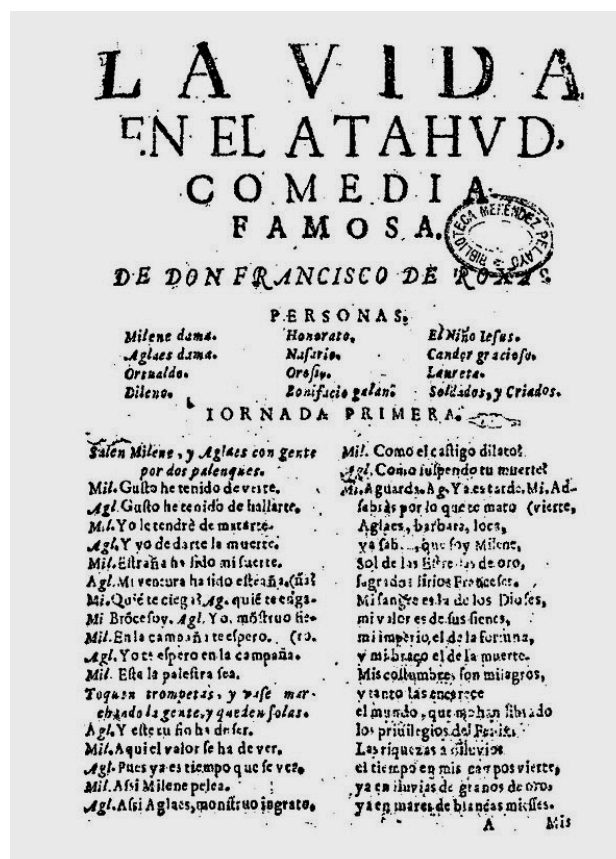 LA VIDA
EN EL ATAHVD,
COMEDIA
FAMOSA.
BIBLIOTECA MENÉNDEZ PELAYO
DE DON FRANCISCO DE ROXAS.
PERSONAS.
Milene dama.
Aglaes dama.
Orsualdo.
Dileno.
Honorato.
Nasario.
Orosio.
Bonifacio galan.
El Niño Iesus.
Cander gracioso.
Laureta.
Soldados, y Criados.
IORNADA PRIMERA.
Salen Milene, y Aglaes con gente
por dos palenques.
Mil. Gusto he tenido de verte.
Agl. Gusto he tenido de hallarte.
Mil. Yo le tendrè de matarte.
Agl. Y yo de darte la muerte.
Mil. Estraña ha sido mi suerte.
Agl. Mi ventura ha sido estraña. (ña?
Mi. Quiē te ciega? Ag. quiē te enga-
Mi Brōce soy. Agl. Yo, mōstruo fie-
Mil. En la campaña te espero. (ro.
Agl. Yo te espero en la campaña.
Mil. Esta la palestra sea.
Toquen trompetas, y vase mar-
chando la gente, y queden solas.
Agl. Y este tu fin ha de ser.
Mil. Aqui el valor se ha de ver.
Agl. Pues ya es tiempo que se vea.
Mil. Assi Milene pelea.
Agl. Assi Aglaes, monstruo ingrato.
Mil. Como el castigo dilato?
Agl. Como suspendo tu muerte?
Mi. Aguarda. Ag. Ya es tarde. Mi. Ad-
sabràs por lo que te mato (vierte,
Aglaes, barbara, loca,
ya sab que soy Milene,
Sol de las Estrellas de oro,
sagrados lirios Franceses.
Mi sangre es la de los Dioses,
mi valor es de sus sienes,
mi imperio, el de la fortuna,
y mi braço el de la muerte.
Mis costumbres son milagros,
y tanto las encarece
el mundo, que me han librado
los priuilegios del Fenix.
Las riquezas a diluvios
el tiempo en mis campos vierte,
ya en lluvias de granos de oro,
ya en mares de blancas miesses.
A Mis